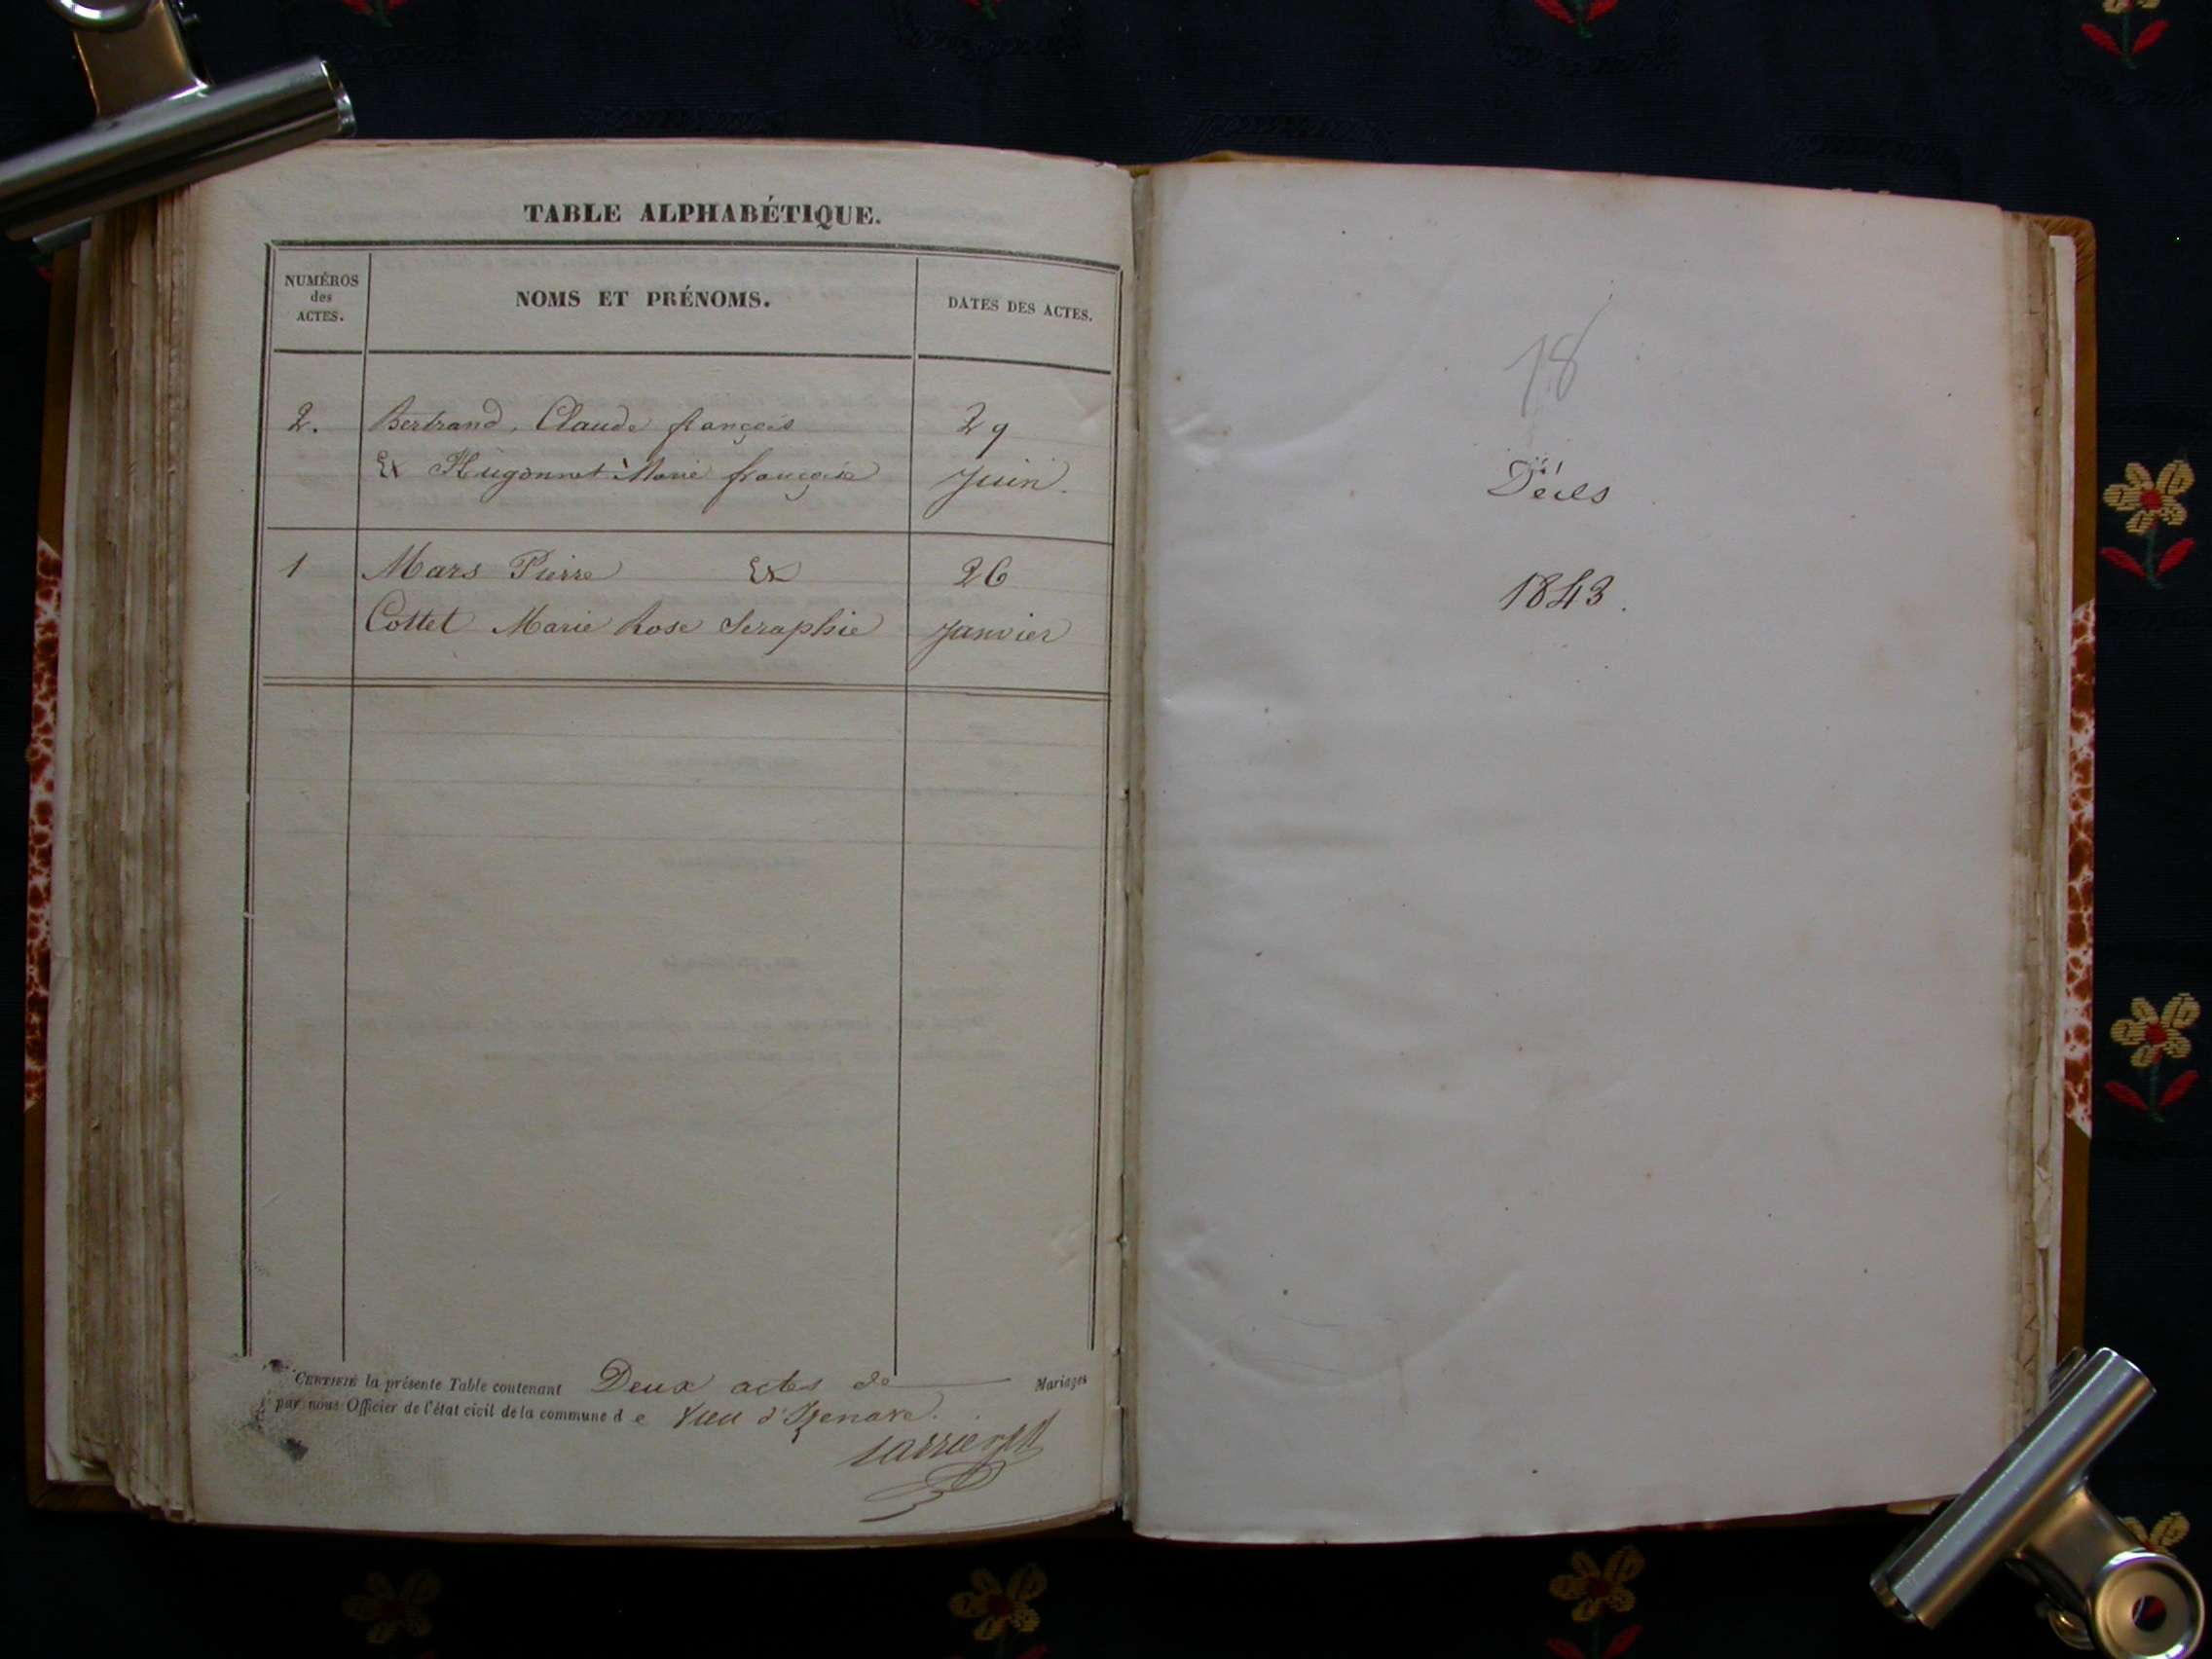 TABLE ALPHABÉTIQUE.
NUMÉROS
des
ACTES.
NOMS ET PRÉNOMS.
DATES DES ACTES.
2. Bertrand, Claude françois 29
Et Hugonnet Marie françoise Juin.
1 Mars Pierre Et 26
Cottet Marie Rose Seraphie Janvier
CERTIFIÉ la présente Table contenant Deux actes de Mariages
par nous Officier de l'état civil de la commune d e Vieu d'Izenave.
18
Décès
1843.